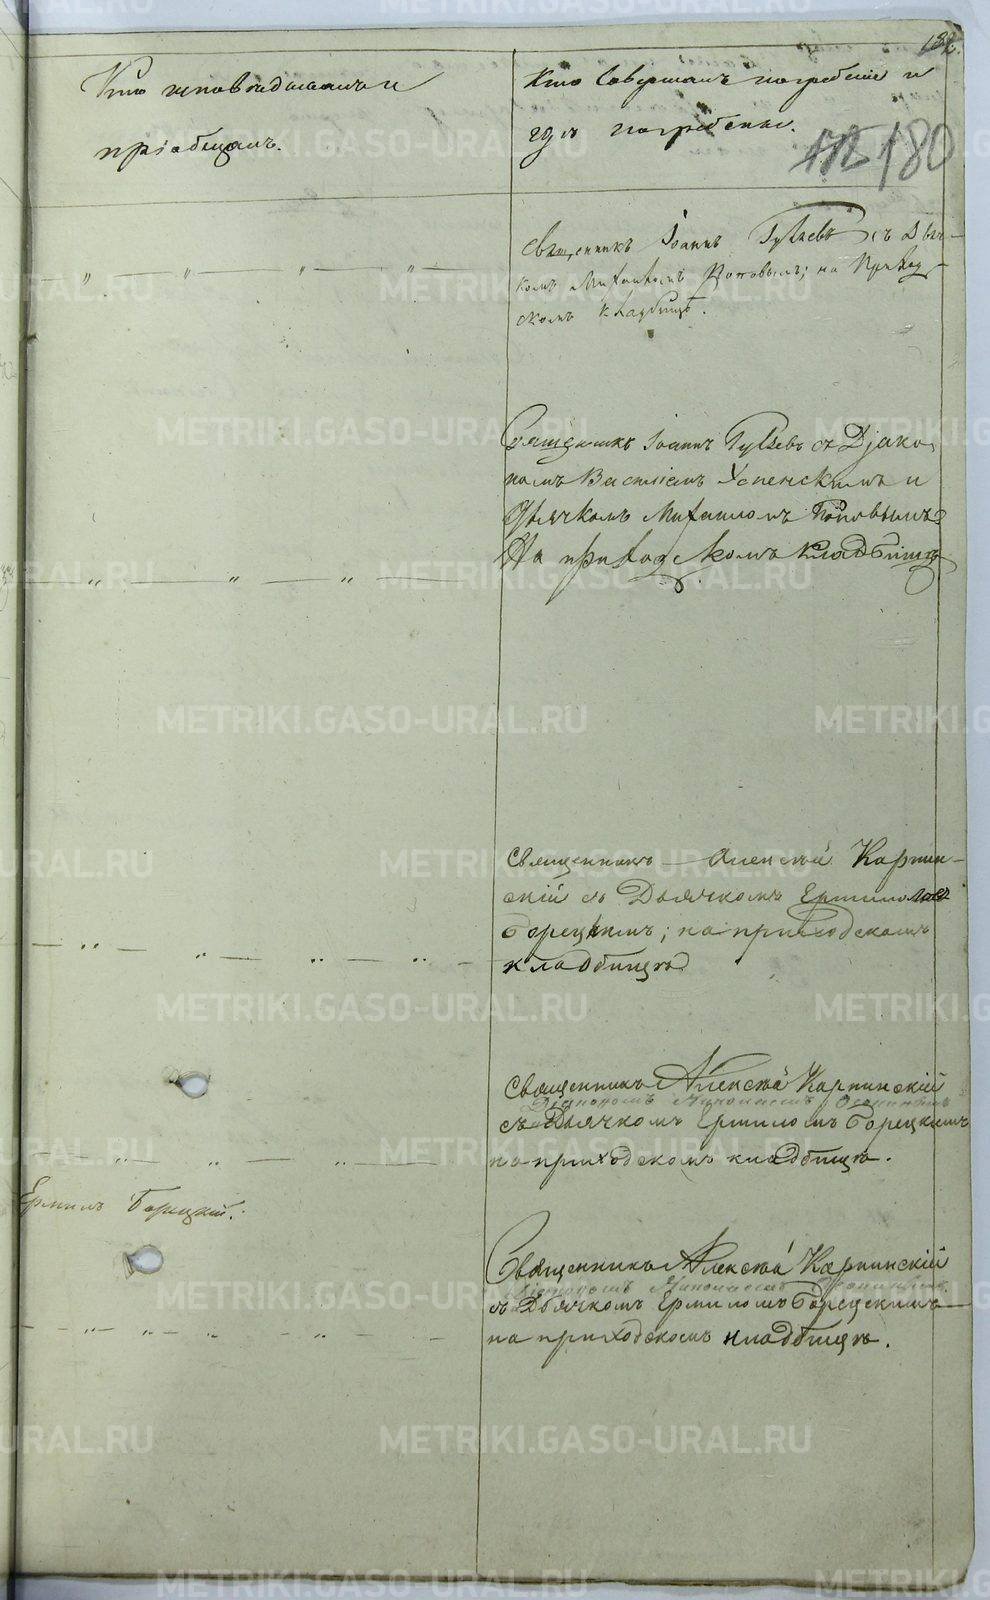 182.
Кто исповѣдывалъ и
пріобщалъ.
Кто совершалъ погребеніе и
гдѣ погребены.
180
Священникъ Іоаннъ Гуляевъ съ Дья-
комъ Михаиломъ Поповымъ; на Приход-
скомъ кладбищѣ.
Священникъ Іоаннъ Гуляевъ съ Діако-
номъ Василіемъ Успенскимъ и
Дьячкомъ Михаиломъ Поповымъ
На приходскомъ кладбищѣ
Священникъ Алексѣй Карпин-
скій съ Дьячкомъ Ермиломъ
Борецкимъ; на приходскомъ
кладбищѣ
Священникъ Алексѣй Карпинскій
Діакономъ
съ Дьячкомъ Ермиломъ Борецкимъ
на приходскомъ кладбищѣ.
Ермилъ Борецкій.
Священникъ Алексѣй Карпинскій
Діакономъ
съ Дьячкомъ Ермиломъ Борецкимъ
на приходскомъ кладбищѣ.
METRIKI.GASO-URAL.RU